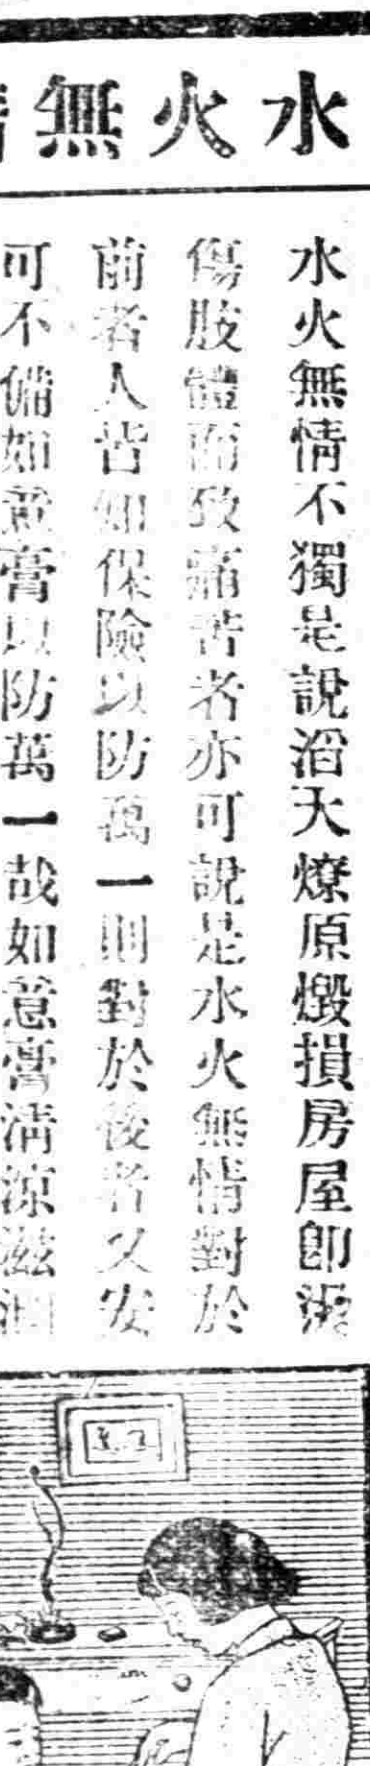 水火無情
水火無情不獨是說滔天燎原燬損房屋卽湯
傷肢體而致痛苦者亦可說是水火無情對於
前者人皆知保險以防萬一則對於後者又安
可不備如意膏以防萬一哉如意膏淸涼滋潤